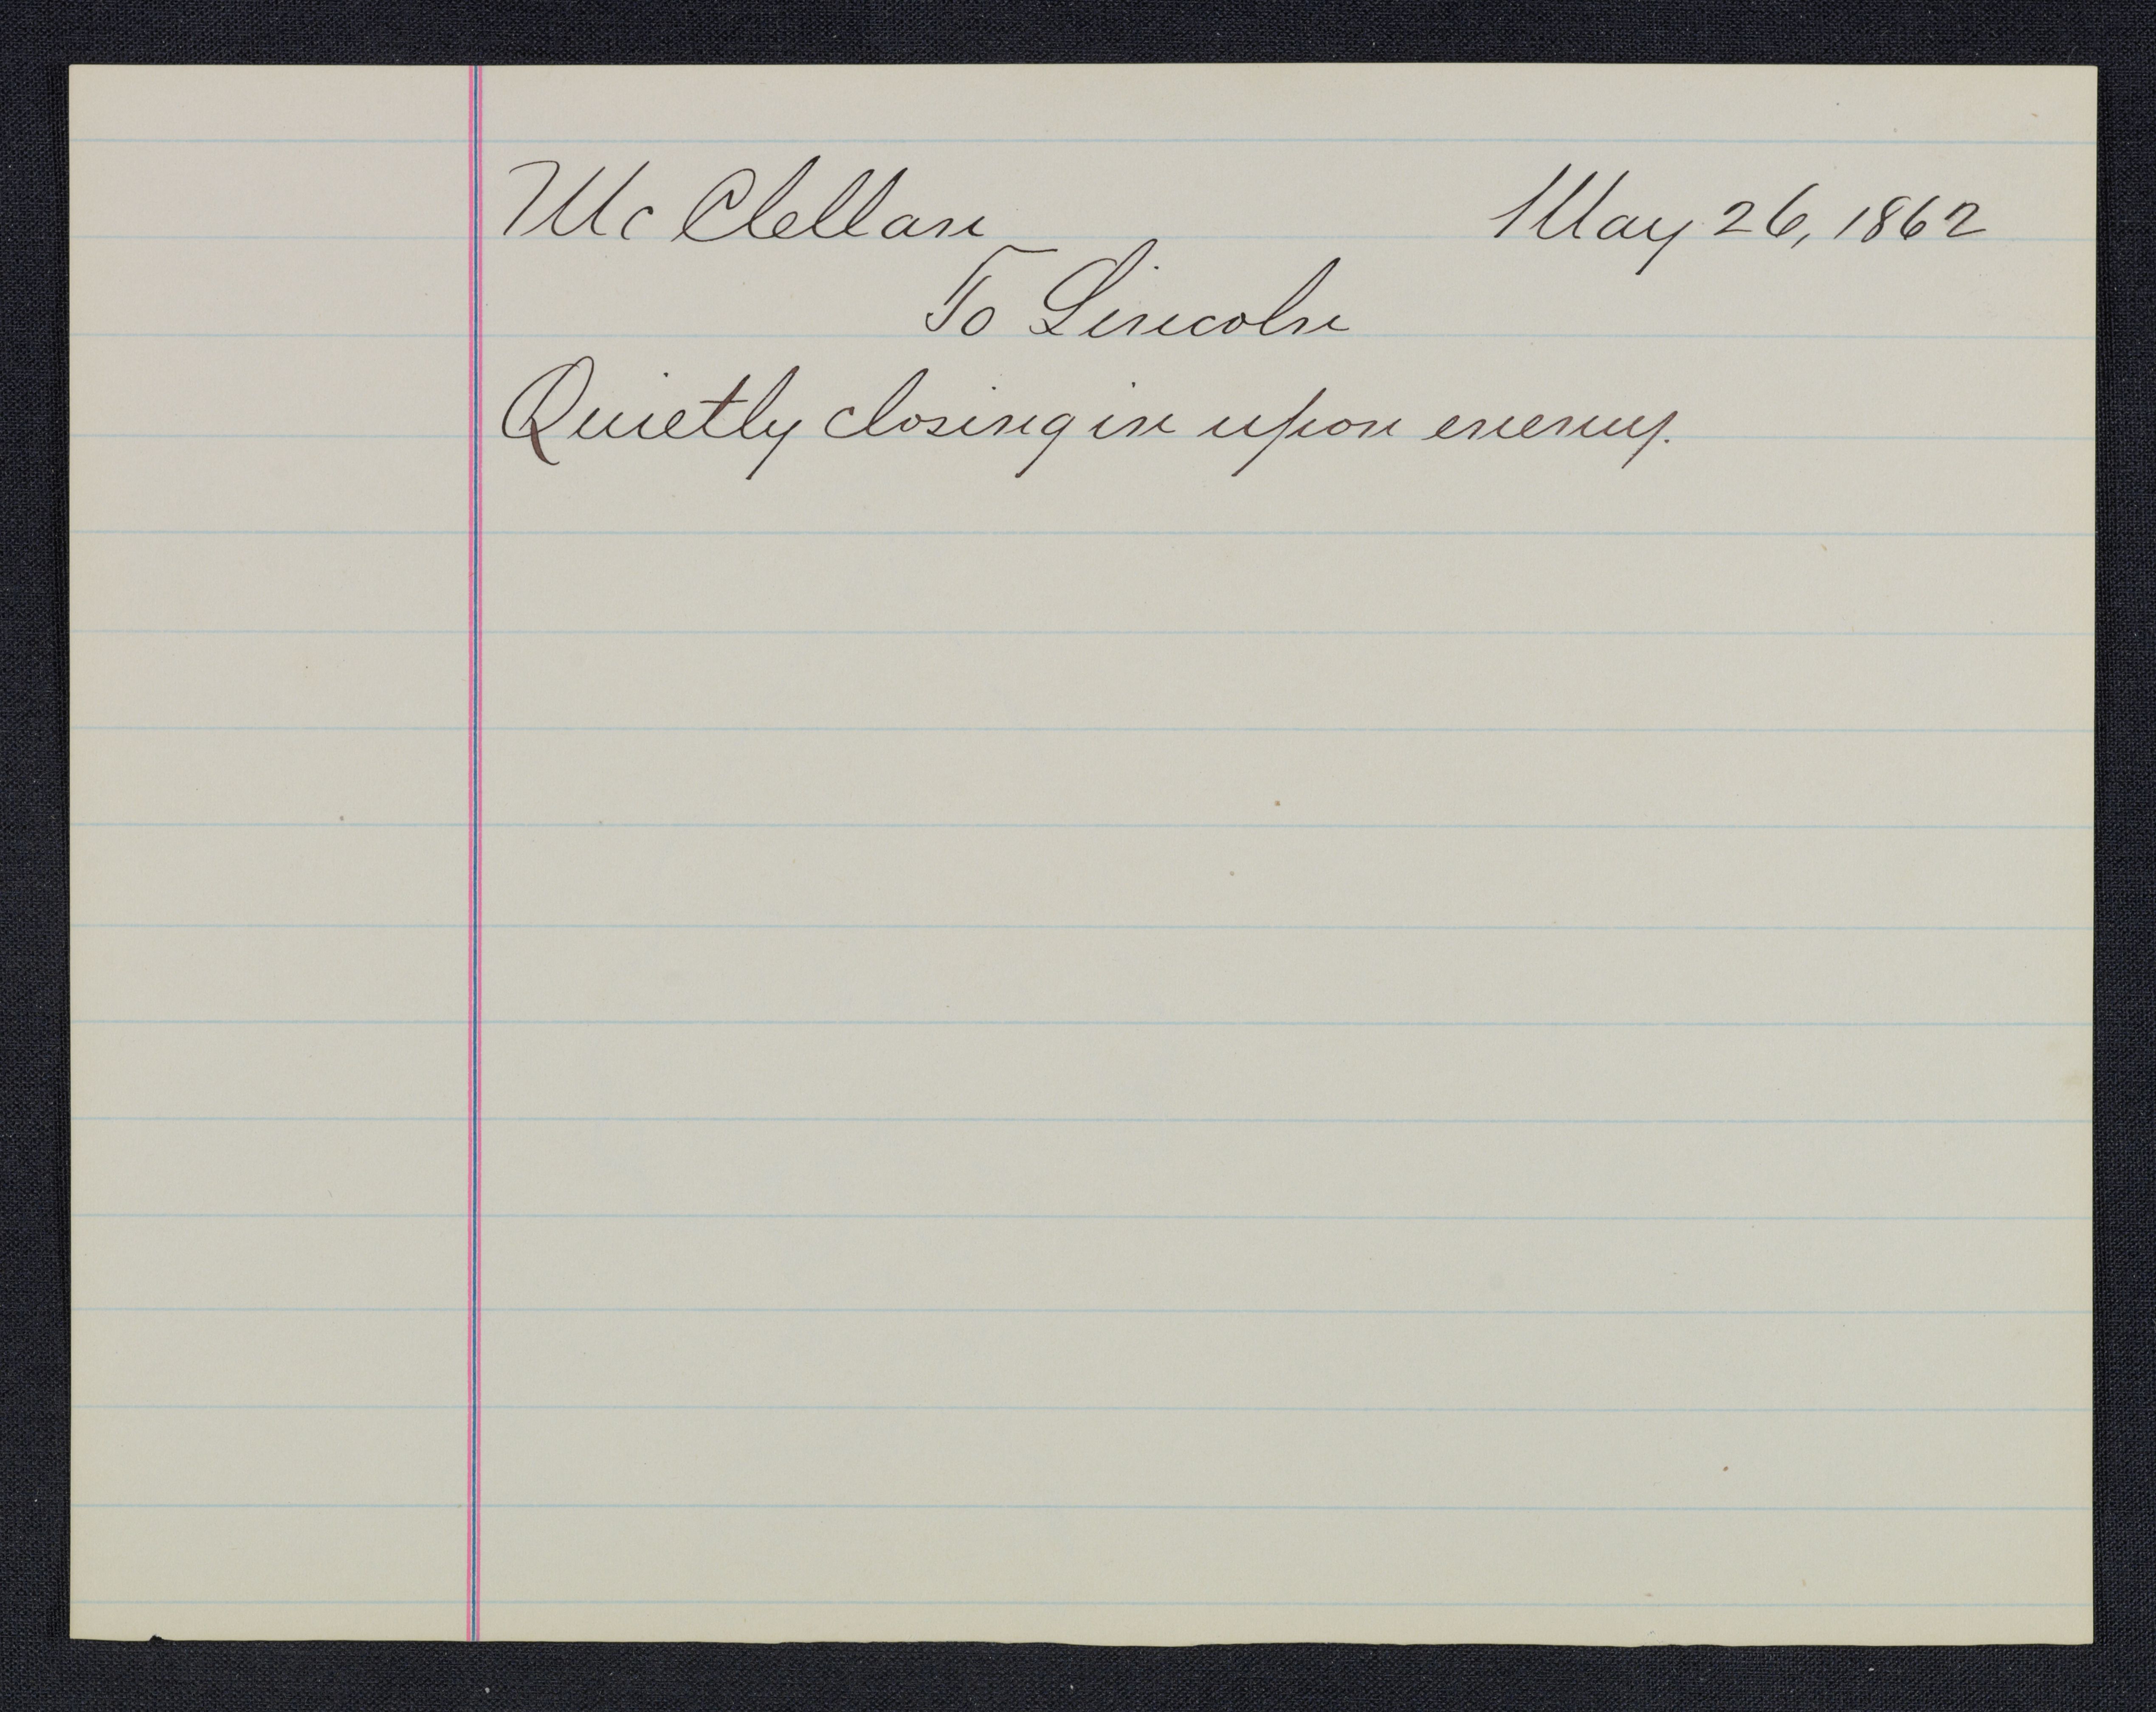 McClellan May 26, 1862
To Lincoln
Quietly closing in upon enemy.